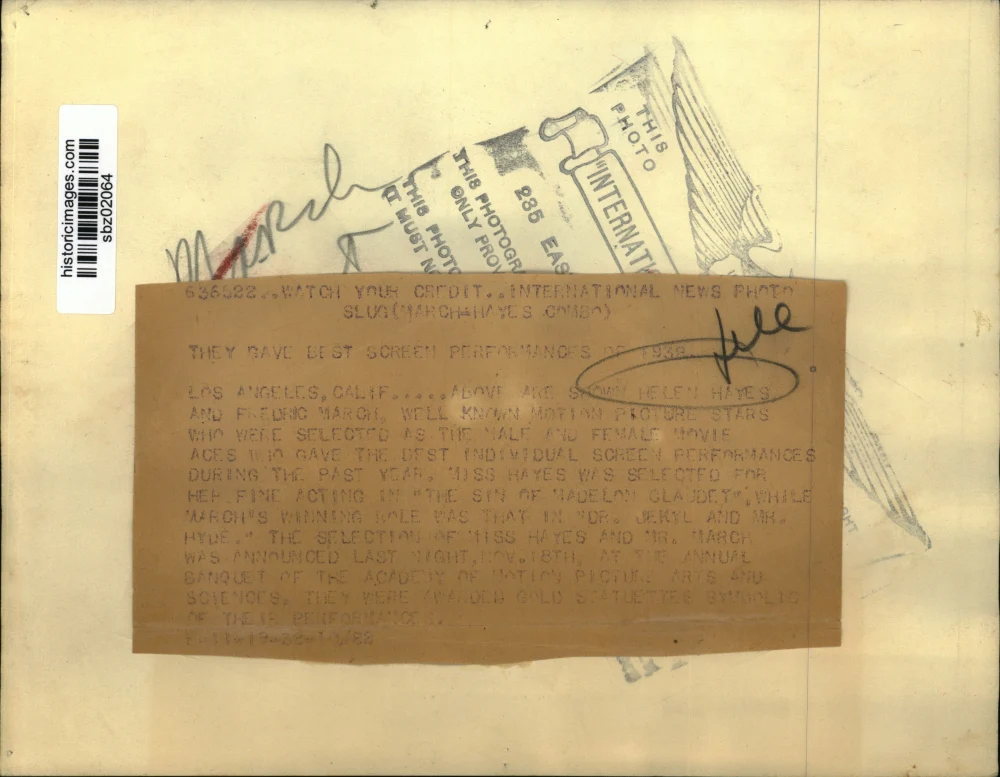 historicimages.com
sbz02064
March
THIS
PHOTO
"INTERNATI
235 EAS
THIS PHOTOGR
ONLY PROV
THIS PHOTO
IT MUST N
WATCH YOUR CREDIT..INTERNATIONAL NEWS PHOTO
SLUG(MARCH&HAYES COMBO)
THEY GAVE BEST SCREEN PERFORMANCES OF
LOS ANGELES,CALIF.....ABOVE ARE SHOWN HELEN HAYES,
AND FREDRIC MARCH, WELL KNOWN MOTION PICTURE STARS
WHO WERE SELECTED AS THE MALE AND FEMALE MOVIE
ACES WHO GAVE THE BEST INDIVIDUAL SCREEN PERFORMANCES
DURING THE PAST YEAR. MISS HAYES WAS SELECTED FOR
HER FINE ACTING IN "THE SIN OF MADELON CLAUDET", WHILE
MARCH'S WINNING ROLE WAS THAT IN "DR. JEKYL AND MR.
HYDE." THE SELECTION OF MISS HAYES AND MR. MARCH
WAS ANNOUNCED LAST NIGHT,NOV.18TH, AT THE ANNUAL
BANQUET OF THE ACADEMY OF MOTION PICTURE ARTS AND
SCIENCES. THEY WERE AWARDED GOLD STATUETTES SYMBOLIC
OF THEIR PERFORMANCES.